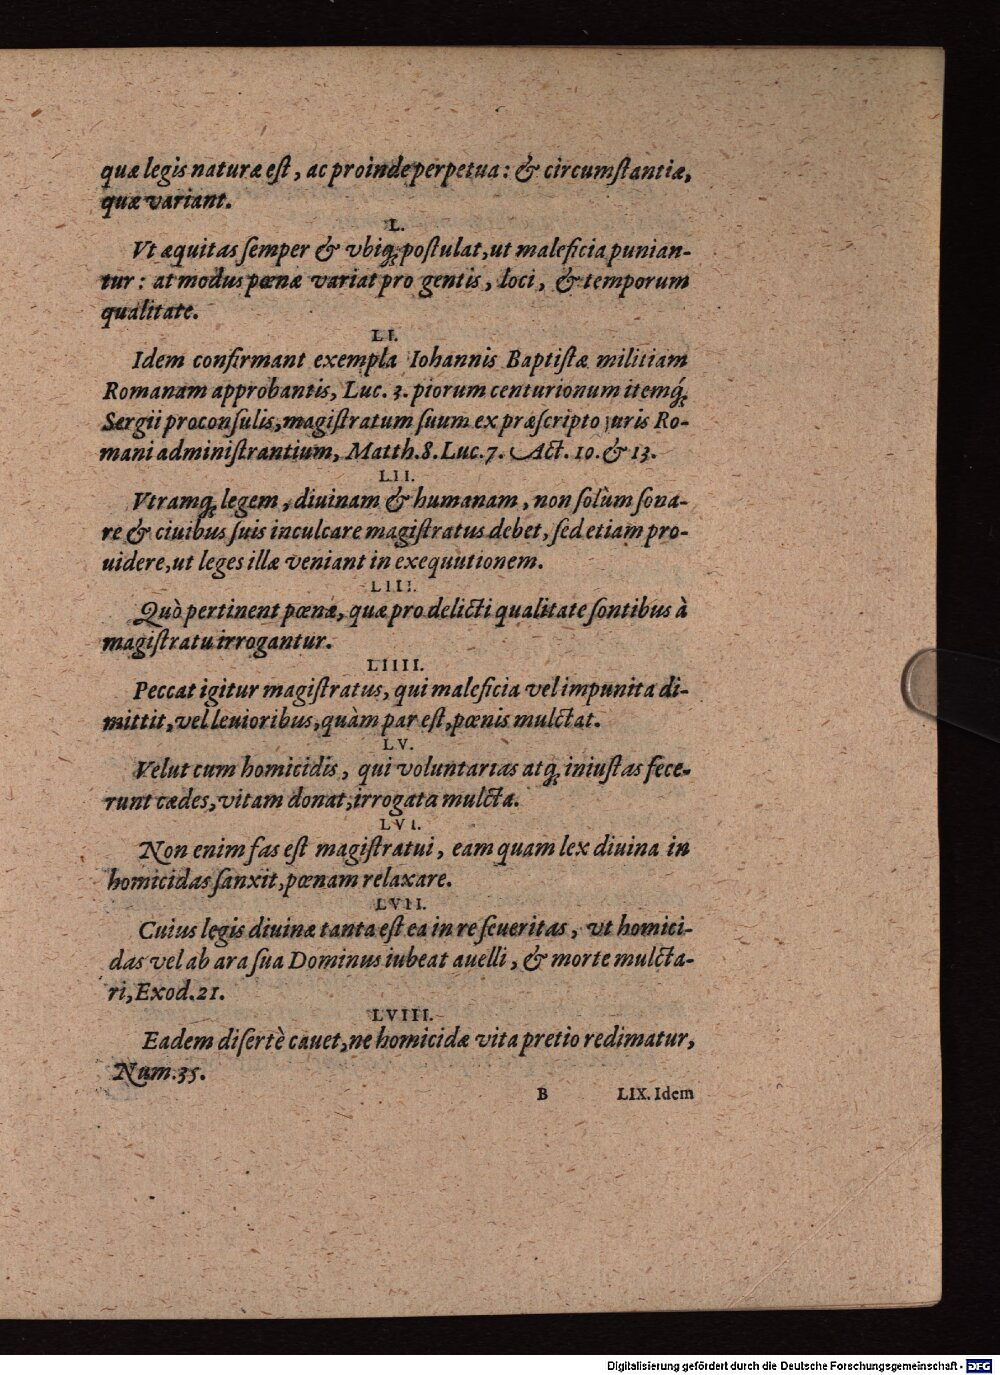 quæ legis naturæ eſt, ac proinde perpetua: & circumſtantiæ,
quæ variant.
L.
Vt æquitas ſemper & vbiq; poſtulat, ut maleficia punian-
tur: at modus pœnæ variat pro gentis, loci, & temporum
qualitate.
LI.
Idem confirmant exempla Iohannis Baptiſtæ militiam
Romanam approbantis, Luc. 3. piorum centurionum itemq́;
Sergii proconſulis, magiſtratum ſuum ex præſcripto iuris Ro-
mani adminiſtrantium, Matth. 8. Luc. 7. Act. 10. & 13.
LII.
Vtramq; legem, diuinam & humanam, non ſolùm ſona-
re & ciuibus ſuis inculcare magiſtratus debet, ſed etiam pro-
uidere, ut leges illæ veniant in exequutionem.
LIII.
Quò pertinent pœnæ, quæ pro delicti qualitate ſontibus à
magiſtratu irrogantur.
LIIII.
Peccat igitur magiſtratus, qui maleficia vel impunita di-
mittit, vel leuioribus, quàm par eſt, pœnis mulctat.
LV.
Velut cum homicidis, qui voluntarias atq; iniuſtas fece-
runt cædes, vitam donat, irrogata mulcta.
LVI.
Non enim fas eſt magiſtratui, eam quam lex diuina in
homicidas ſanxit, pœnam relaxare.
LVII.
Cuius legis diuinæ tanta eſt ea in re ſeueritas, vt homici-
das vel ab ara ſua Dominus iubeat auelli, & morte mulcta-
ri, Exod. 21.
LVIII.
Eadem diſertè cauet, ne homicidæ vita pretio redimatur,
Num. 35.
B LIX. Idem
Digitalisierung gefördert durch die Deutsche Forschungsgemeinschaft - DFG